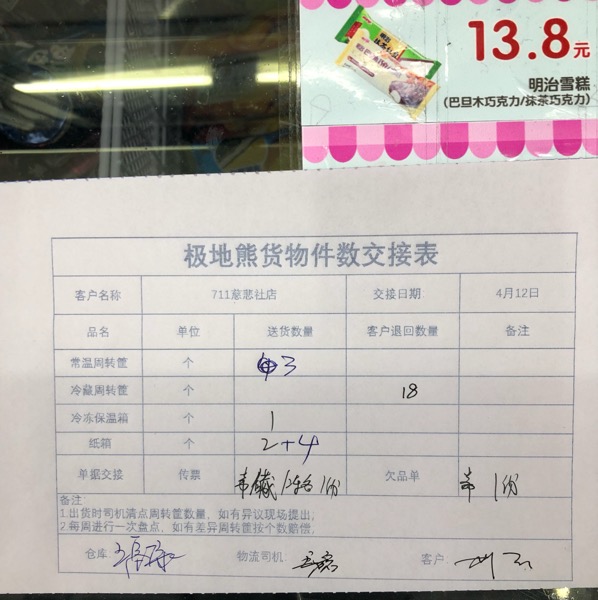 13.8元
明治雪糕
(巴旦木巧克力/抹茶巧克力)
极地熊货物件数交接表
客户名称 711慈悲社店 交接日期 4月12日
品名 单位 送货数量 客户退回数量 备注
常温周转筐 个 3
冷藏周转筐 个 18
冷冻保温箱 个 1
纸箱 个 2+4
单据交接 传票 1份 欠品单 1份
备注
1.出货时司机清点周转筐数量，如有异议现场提出；
2.每周进行一次盘点，如有差异周转筐按个数赔偿；
仓库： 物流司机： 客户：